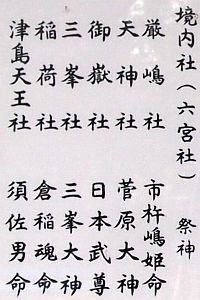 境内社（六宮社）　祭神
厳嶋社　市杵嶋姫命
天神社　菅原大神
御嶽社　日本武尊
三峯社　三峯大神
稲荷社　倉稲魂命
津島天王社　須佐男命